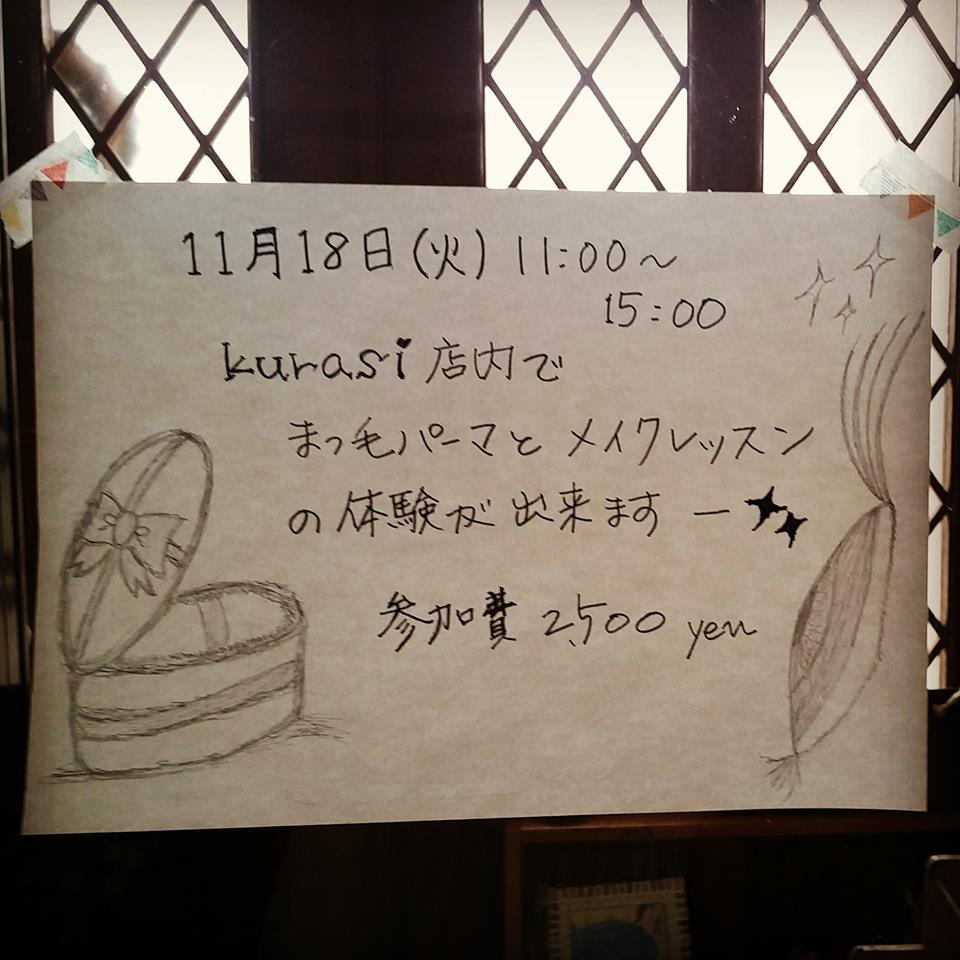 11月18日(火) 11:00〜
15:00
kurasi 店内で
まつ毛パーマと メイクレッスン
の体験が出来ますー
参加費 2,500 yen